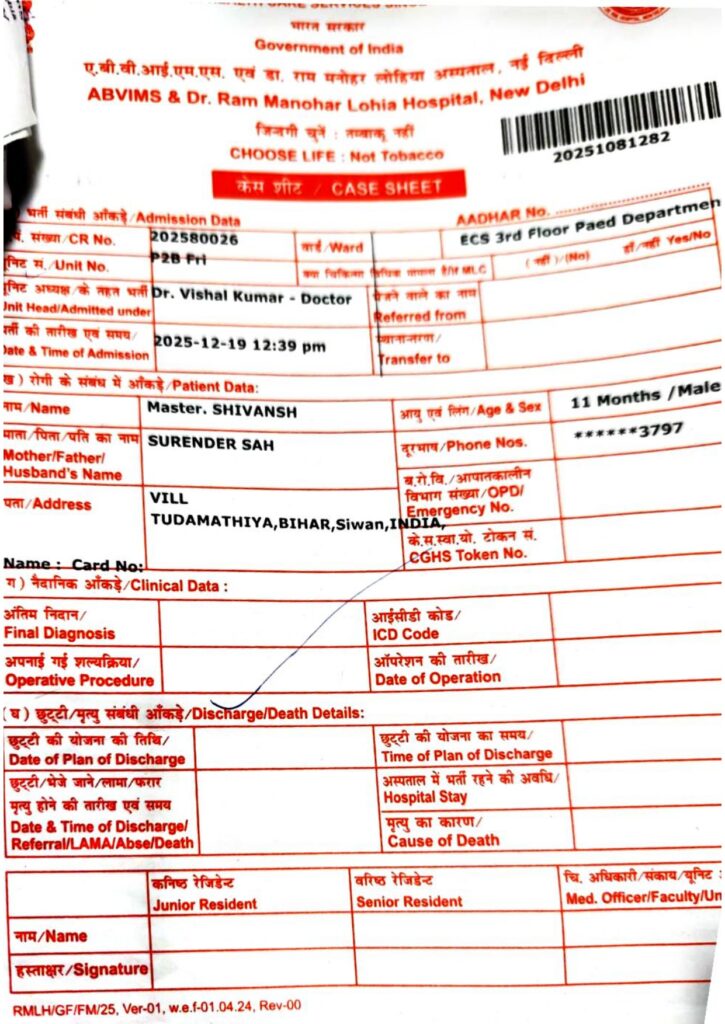 भारत सरकार
Government of India
ए.बी.वी.आई.एम.एस. एवं डा. राम मनोहर लोहिया अस्पताल, नई दिल्ली
ABVIMS & Dr. Ram Manohar Lohia Hospital, New Delhi
जिन्दगी चुनें : तम्बाकू नहीं
CHOOSE LIFE : Not Tobacco
20251081282
केस शीट / CASE SHEET
) भर्ती संबंधी आँकड़े/Admission Data
AADHAR No.
सं. संख्या/CR No. 202580026 वार्ड/Ward ECS 3rd Floor Paed Departmen
यूनिट सं./Unit No. P2B Fri MLC ( नहीं )/(No) हाँ/नहीं Yes/No
यूनिट अध्यक्ष/के तहत भर्ती Dr. Vishal Kumar - Doctor भेजने वाले का नाम
Unit Head/Admitted under Referred from
भर्ती की तारीख एवं समय/ 2025-12-19 12:39 pm स्थानान्तरण/
Date & Time of Admission Transfer to
ख ) रोगी के संबंध में आँकड़े/Patient Data:
नाम/Name Master. SHIVANSH आयु एवं लिंग/Age & Sex 11 Months /Male
माता/पिता/पति का नाम SURENDER SAH दूरभाष/Phone Nos. ******3797
Mother/Father/
Husband's Name
ब.रो.वि./आपातकालीन
विभाग संख्या/OPD/
Emergency No.
पता/Address VILL
TUDAMATHIYA,BIHAR,Siwan,INDIA,
के.स.स्वा.यो. टोकन सं.
CGHS Token No.
Name : Card No:
ग ) नैदानिक आँकड़े/Clinical Data :
अंतिम निदान/ आईसीडी कोड/
Final Diagnosis ICD Code
अपनाई गई शल्यक्रिया/ ऑपरेशन की तारीख/
Operative Procedure Date of Operation
( घ ) छुट्टी/मृत्यु संबंधी आँकड़े/Discharge/Death Details:
छुट्टी की योजना की तिथि/ छुट्टी की योजना का समय/
Date of Plan of Discharge Time of Plan of Discharge
छुट्टी/भेजे जाने/लामा/फरार अस्पताल में भर्ती रहने की अवधि/
मृत्यु होने की तारीख एवं समय Hospital Stay
Date & Time of Discharge/ मृत्यु का कारण/
Referral/LAMA/Abse/Death Cause of Death
कनिष्ठ रेजिडेन्ट वरिष्ठ रेजिडेन्ट चि. अधिकारी/संकाय/यूनिट
Junior Resident Senior Resident Med. Officer/Faculty/Un
नाम/Name
हस्ताक्षर/Signature
RMLH/GF/FM/25, Ver-01, w.e.f-01.04.24, Rev-00